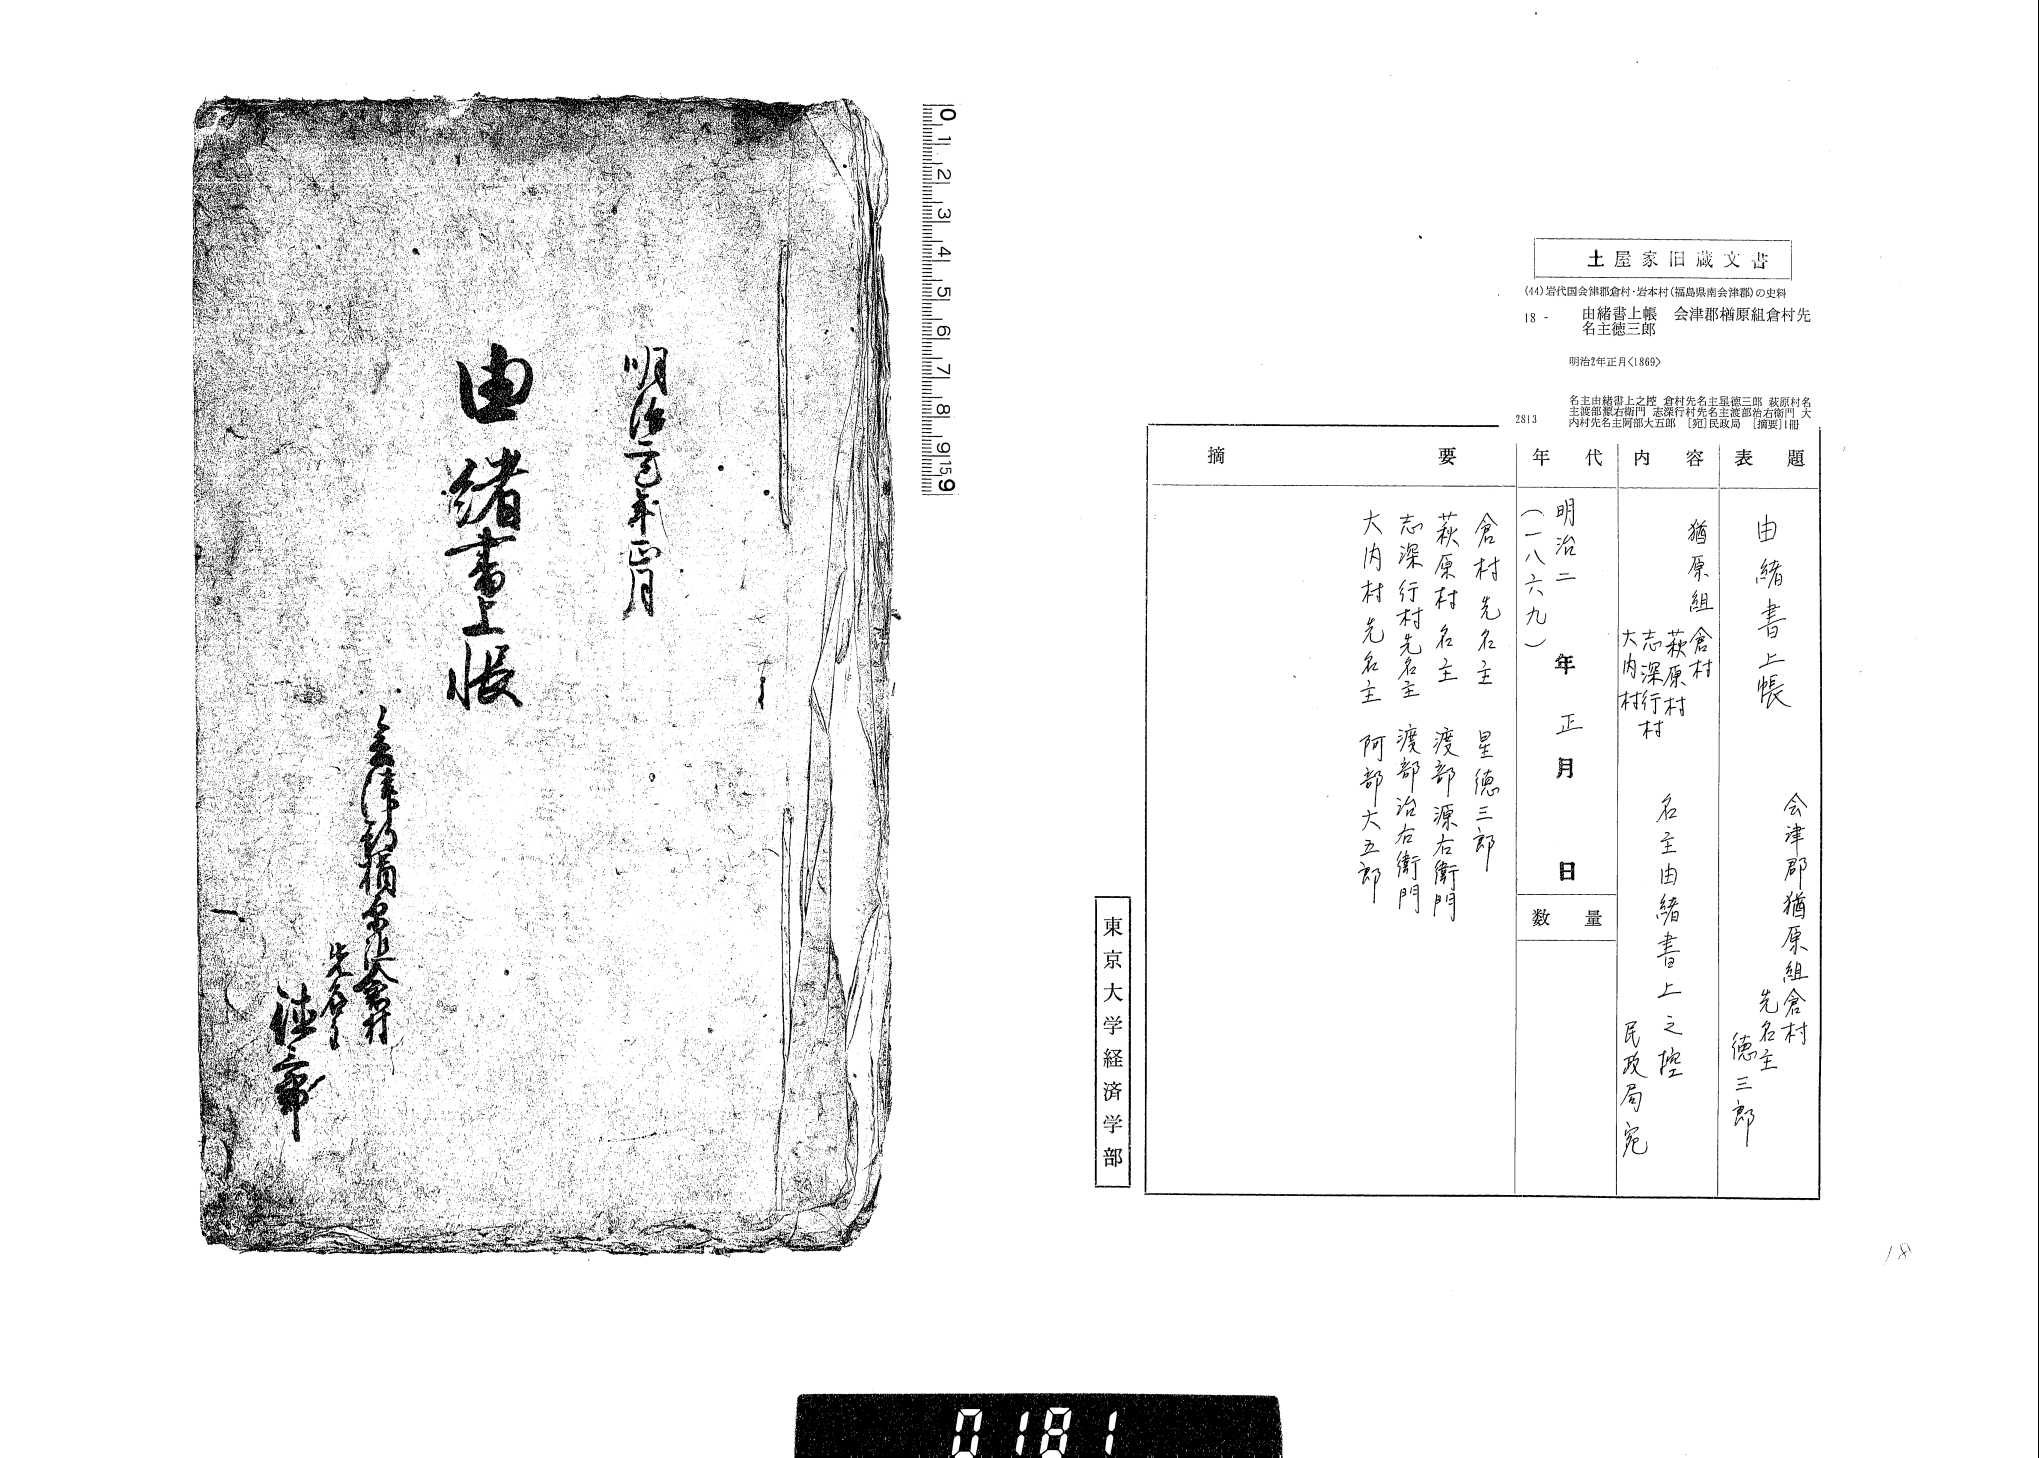 土屋家旧蔵文書
(44)岩代国会津郡倉村・岩本村(福島県南会津郡)の史料
18 - 由緒書上帳 会津郡楢原組倉村先
名主徳三郎
明治2年正月〈1869〉
2813
名主由緒書上之控 倉村先名主星徳三郎 萩原村名
主渡部源右衛門 志深行村先名主渡部治右衛門 大
内村先名主阿部大五郎 [宛]民政局 [摘要]1冊
表題
由緒書上帳
会津郡楢原組倉村
先名主
徳三郎
内容
楢原組
倉村
萩原村
志深行村
大内村
名主由緒書上之控
民政局宛
年代
明治二年正月日
(一八六九)
数量
摘要
倉村先名主 星徳三郎
萩原村名主 渡部源右衛門
志深行村先名主 渡部治右衛門
大内村先名主 阿部大五郎
東京大学経済学部
18
0 1 2 3 4 5 6 7 8 9 15 9
明治二巳年正月
由緒書上帳
会津郡楢原組倉村
先名主
徳三郎
0181